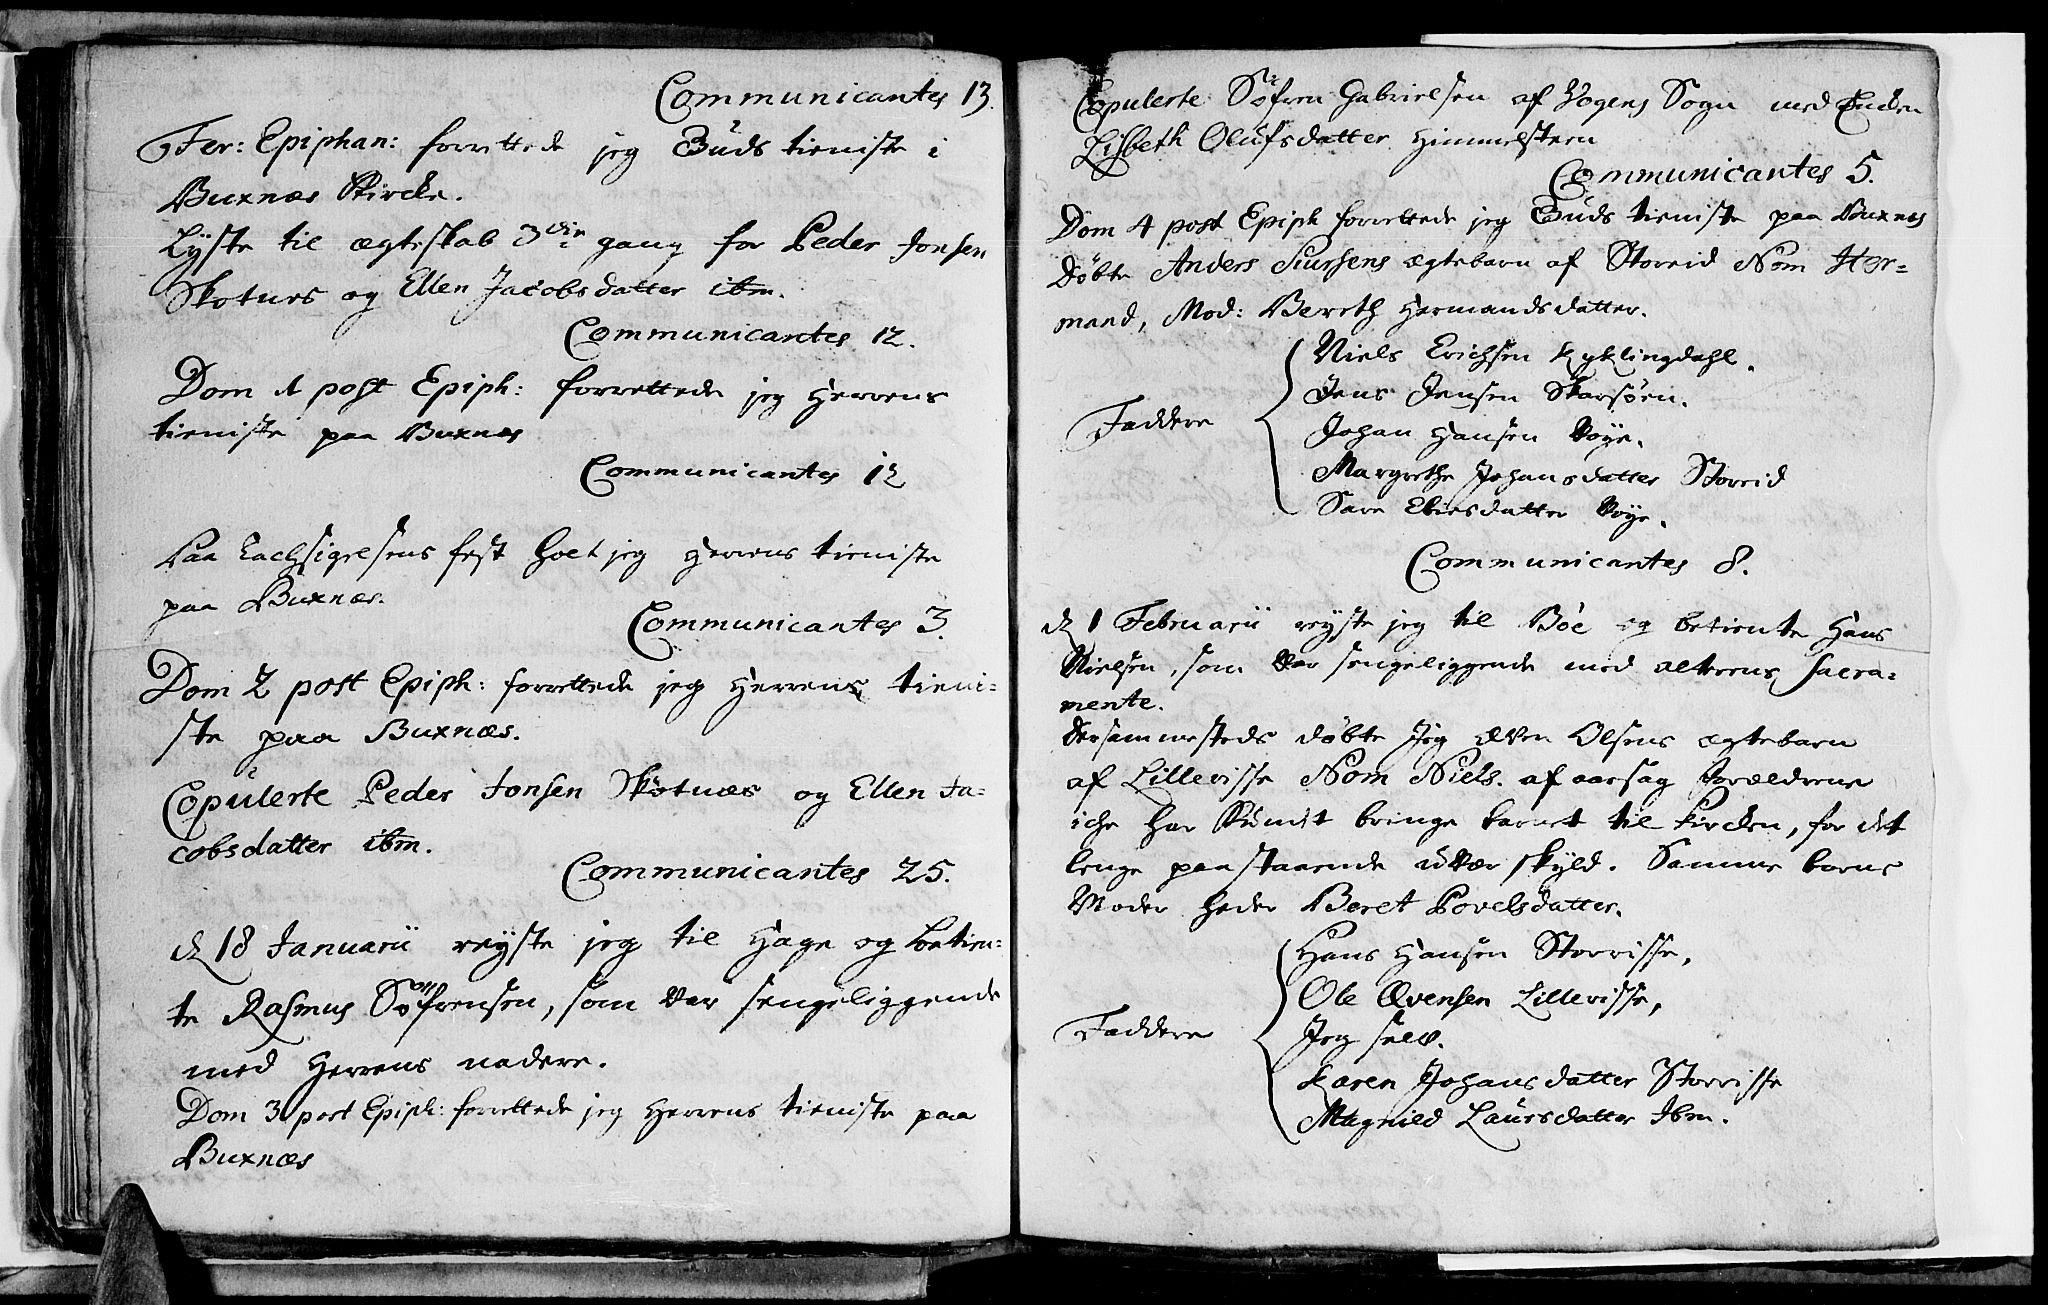 Communicantes 13.
Fer: Epiphan: forrettede jeg Guds tieniste i
Buxnæs Kircke.
Lyste til ægteskab 3die gang for Peder Jonsen
Skotnes og Ellen Jacobsdatter ibm.
Communicantes 12.
Dom 1 post Epiph: forrettede jeg Herrens
tieniste paa Buxnæs
Communicantes 12
Paa Tachsigelsens fest holt jeg Herrens tieniste
paa Buxnæs.
Communicantes 3.
Dom 2 post Epiph: forrettede jeg Herrens tieni-
ste paa Buxnæs.
Copulerte Peder Jonsen Skotnæs og Ellen Ja-
cobsdatter ibm.
Communicantes 25.
d 18 Januarii reyste jeg til Hage og betien-
te Rasmus Söfrensen, som var sengeliggende
med Herrens nadere.
Dom 3 post Epiph: forrettede jeg Herrens tieniste paa
Buxnæs
Copulerte Söfren Gabrielsen af Vogens Sogn med Encken
Lisbeth Olufsdatter Himmelsteen
Communicantes 5.
Dom 4 post Epiph forrettede jeg Guds tieniste paa Buxnæs
Døbte Anders Siursens ægtebarn af Storeid Nom Her-
mand, Mod: Bereth Hermandsdatter.
Niels Erichsen Kyklingdahl.
Jens Jensen Skarsøen.
Faddere
Johan Hansen Voye.
Margrethe Johansdatter Storeid
Sara Eliesdatter Voye.
Communicantes 8.
d 1 Februarii reyste jeg til Böe og betiente Hans
Nielsen, som var sengeliggende med alterens sacra-
mente.
Dersammesteds döbte Jeg Even Olsens ægtebarn
af Lillevisse Nom Niels. af aarsag forældrene
iche har kundt bringe barnet til kircken, for det
lenge paastaaende uvær skyld. Samme barns
Moder heder Beret Povelsdatter.
Hans Hansen Storvisse,
Ole Evensen Lillevisse,
Faddere
Jeg selv.
Karen Johansdatter Storvisse
Magnild Laursdatter Ibm.